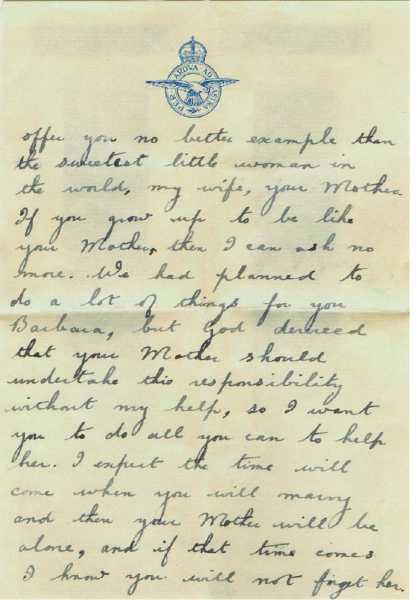 PER ARDUA AD ASTRA
offer you no better example than
the sweetest little woman in
the world, my wife, your Mother
If you grow up to be like
your Mother, then I can ask no
more. We had planned to
do a lot of things for you
Barbara, but God decreed
that your Mother should
undertake this responsibility
without my help, so I want
you to do all you can to help
her. I expect the time will
come when you will marry
and then your Mother will be
alone, and if that time comes
I know you will not forget her.